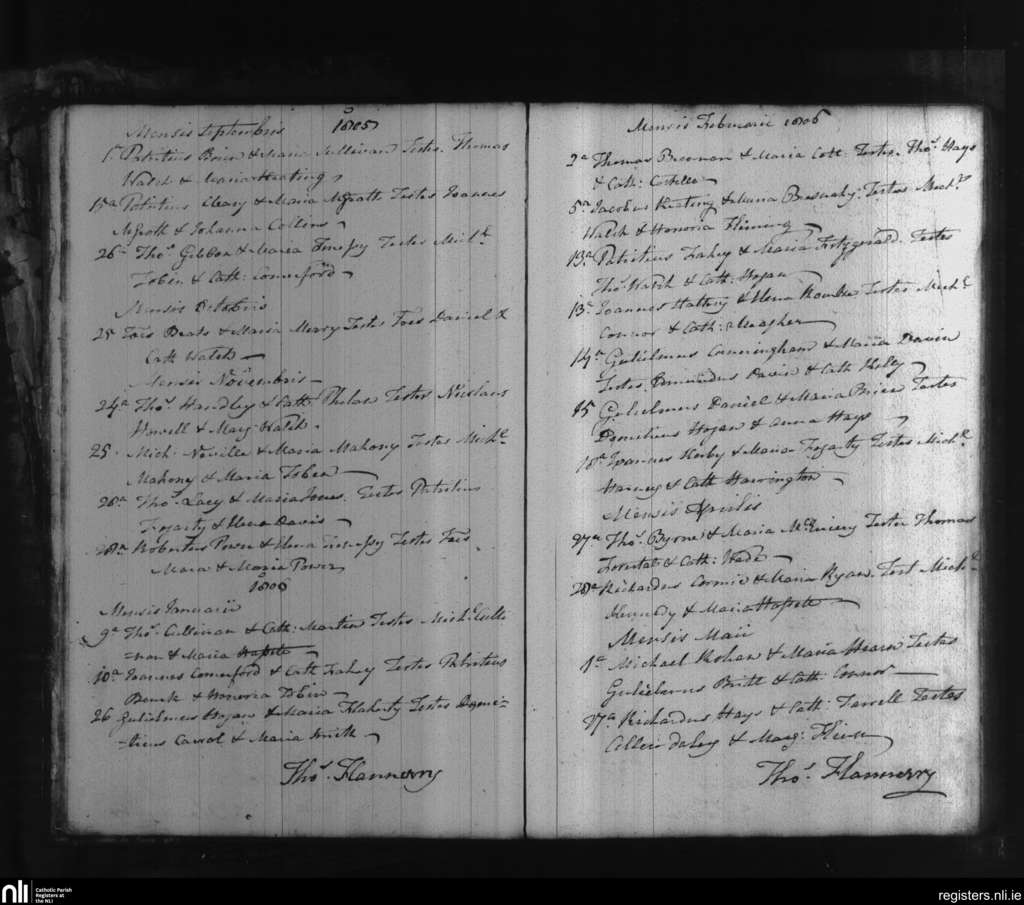 Mensis Septembris 1805
1a Patritius Brien & Maria Sullivan Testes Thomas
Walsh & Maria Keating
15a Patritius Cleary & Maria McGrath Testes Joannes
McGrath & Johanna Collins
26a Thos. Gibbon & Maria Testes Michl.
Tobin & Cath: Comerford
Mensis Octobris
25 Jacs & Maria Meary Testes Jacs Daniel &
Cath Walsh
Mensis Novembris
24a Thos. Handley & Cath: Phelan Testes Nicolaus
Howell & Mary Walsh
25 Mich: Neville & Maria Mahony Testes Michl.
Mahony & Maria Tobin
26a Thos. Lacy & Maria Jones. Testes Patritius
Fogarty & Elena Davis
28a Robertus Power & Elena Testes Jacs
Mara & Maria Power
1806
Mensis Januarii
9a Thos. Cullinan & Cath: Martin Testes Michl. Culli
nan & Maria
10a Joannes Comerford & Cath Fahey Testes Patritius
Bourk & Honoria Tobin
26 Gulielmus Hogan & Maria Flaherty Testes Domi-
-nicus Carrol & Maria Smith
Thos. Flannerry
Mensis Februarii 1806
2a Thomas Brennan & Maria Cott Testes. Thos. Hays
& Cath: Costello
5a Jacobus Keating & Anna Testes Michl.
Walsh & Honoria Fleming
13a Patritius Fahey & Maria Fitzgerald. Testes
Thos. Walsh & Cath: Hogan
13a Joannes & Elena Testes Michl.
Connor & Cath: Meagher
14a Gulielmus Cunningham & Maria Davin
Testes Edmundus Davin & Cath Kely
15 Gulielmus Daniel & Maria Brien Testes
Hogan & Anna Hays
18a Joannes Kirby & Maria Fogarty Testes Michl.
& Cath Harrington
Mensis Aprilis
27a Thos. Byrne & Maria Testes Thomas
& Cath: Wade
28a Richardus Cormic & Maria Ryan. Test Michl.
Kennedy & Maria
Mensis Maii
1a Michael & Maria Hearn Testes
Gulielmus Britt & Cath: Connor
27a Richardus Hays & Cath: Farrell Testes
& Marg:
Thos. Flannerry
nli
Catholic Parish
Registers at
the NLI
registers.nli.ie